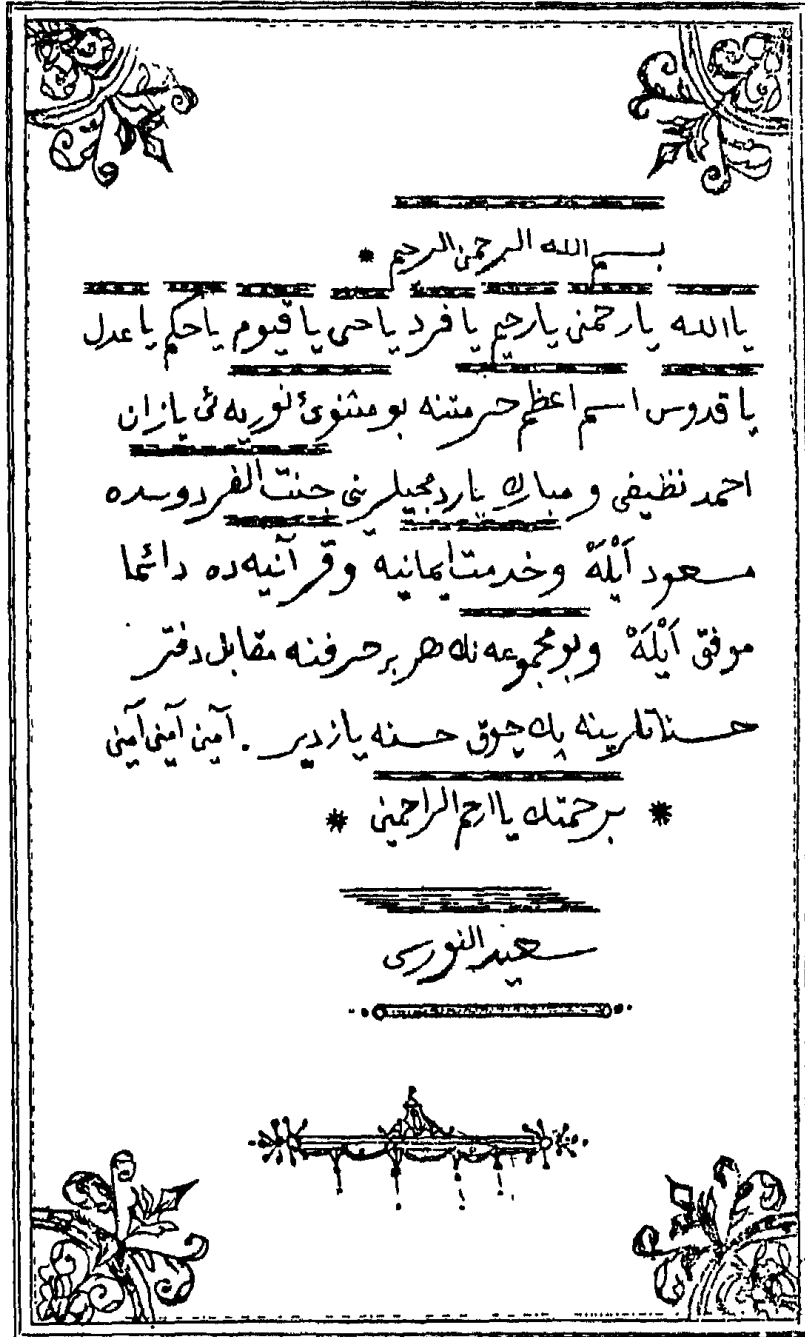 بسم الله الرحمن الرحيم *
يا الله يا رحمن يا رحيم يا فرد يا حى يا قيوم يا حكم يا عدل
يا قدوس اسم اعظم حرمتنه بو مثنوئ نوريه ئى يازان
احمد نظيفى و مبارك ياردمجيلرينى جنت الفردوسده
مسعود اَيْلَهْ وخدمت ايمانيه و قرآنيه ده دائما
موفق اَيْلَهْ وبو مجموعه نك هر بر حرفنه مقابل دفتر
حسناتلرينه پك چوق حسنه يازدير . آمين آمين آمين
* برحمتك يا ارحم الراحمين *
سعيد النورسى